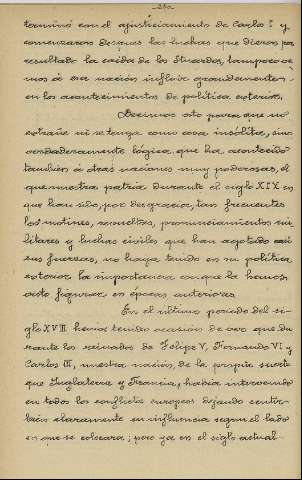 terminó con el ajusticiamiento de Carlos I y
comenzaron después las luchas que dieron por
resultado la caída de los Stuardos, tampoco ve-
mos á esa nación influir grandemente
en los acontecimientos de política exterior.
Decimos esto para que no
extrañe ni se tenga como cosa insólita, sino
verdaderamente lógica, que ha acontecido
también á otras naciones muy poderosas, el
que nuestra patria durante el siglo XIX en
que han sido, por desgracia, tan frecuentes
los motines, revueltas, pronunciamientos mi-
litares y luchas civiles que han agotado casi
sus fuerzas, no haya tenido en su política
exterior la importancia con que la hemos
visto figurar en épocas anteriores
En el último periodo del si-
glo XVIII hemos tenido ocasión de ver que du-
rante los reinados de Felipe V, Fernando VI y
Carlos III, nuestra nación, de la propia suerte
que Inglaterra y Francia, había intervenido
en todos los conflictos europeos dejando sentir
bien claramente su influencia segun el lado
en que se colocara; pero ya en el siglo actual